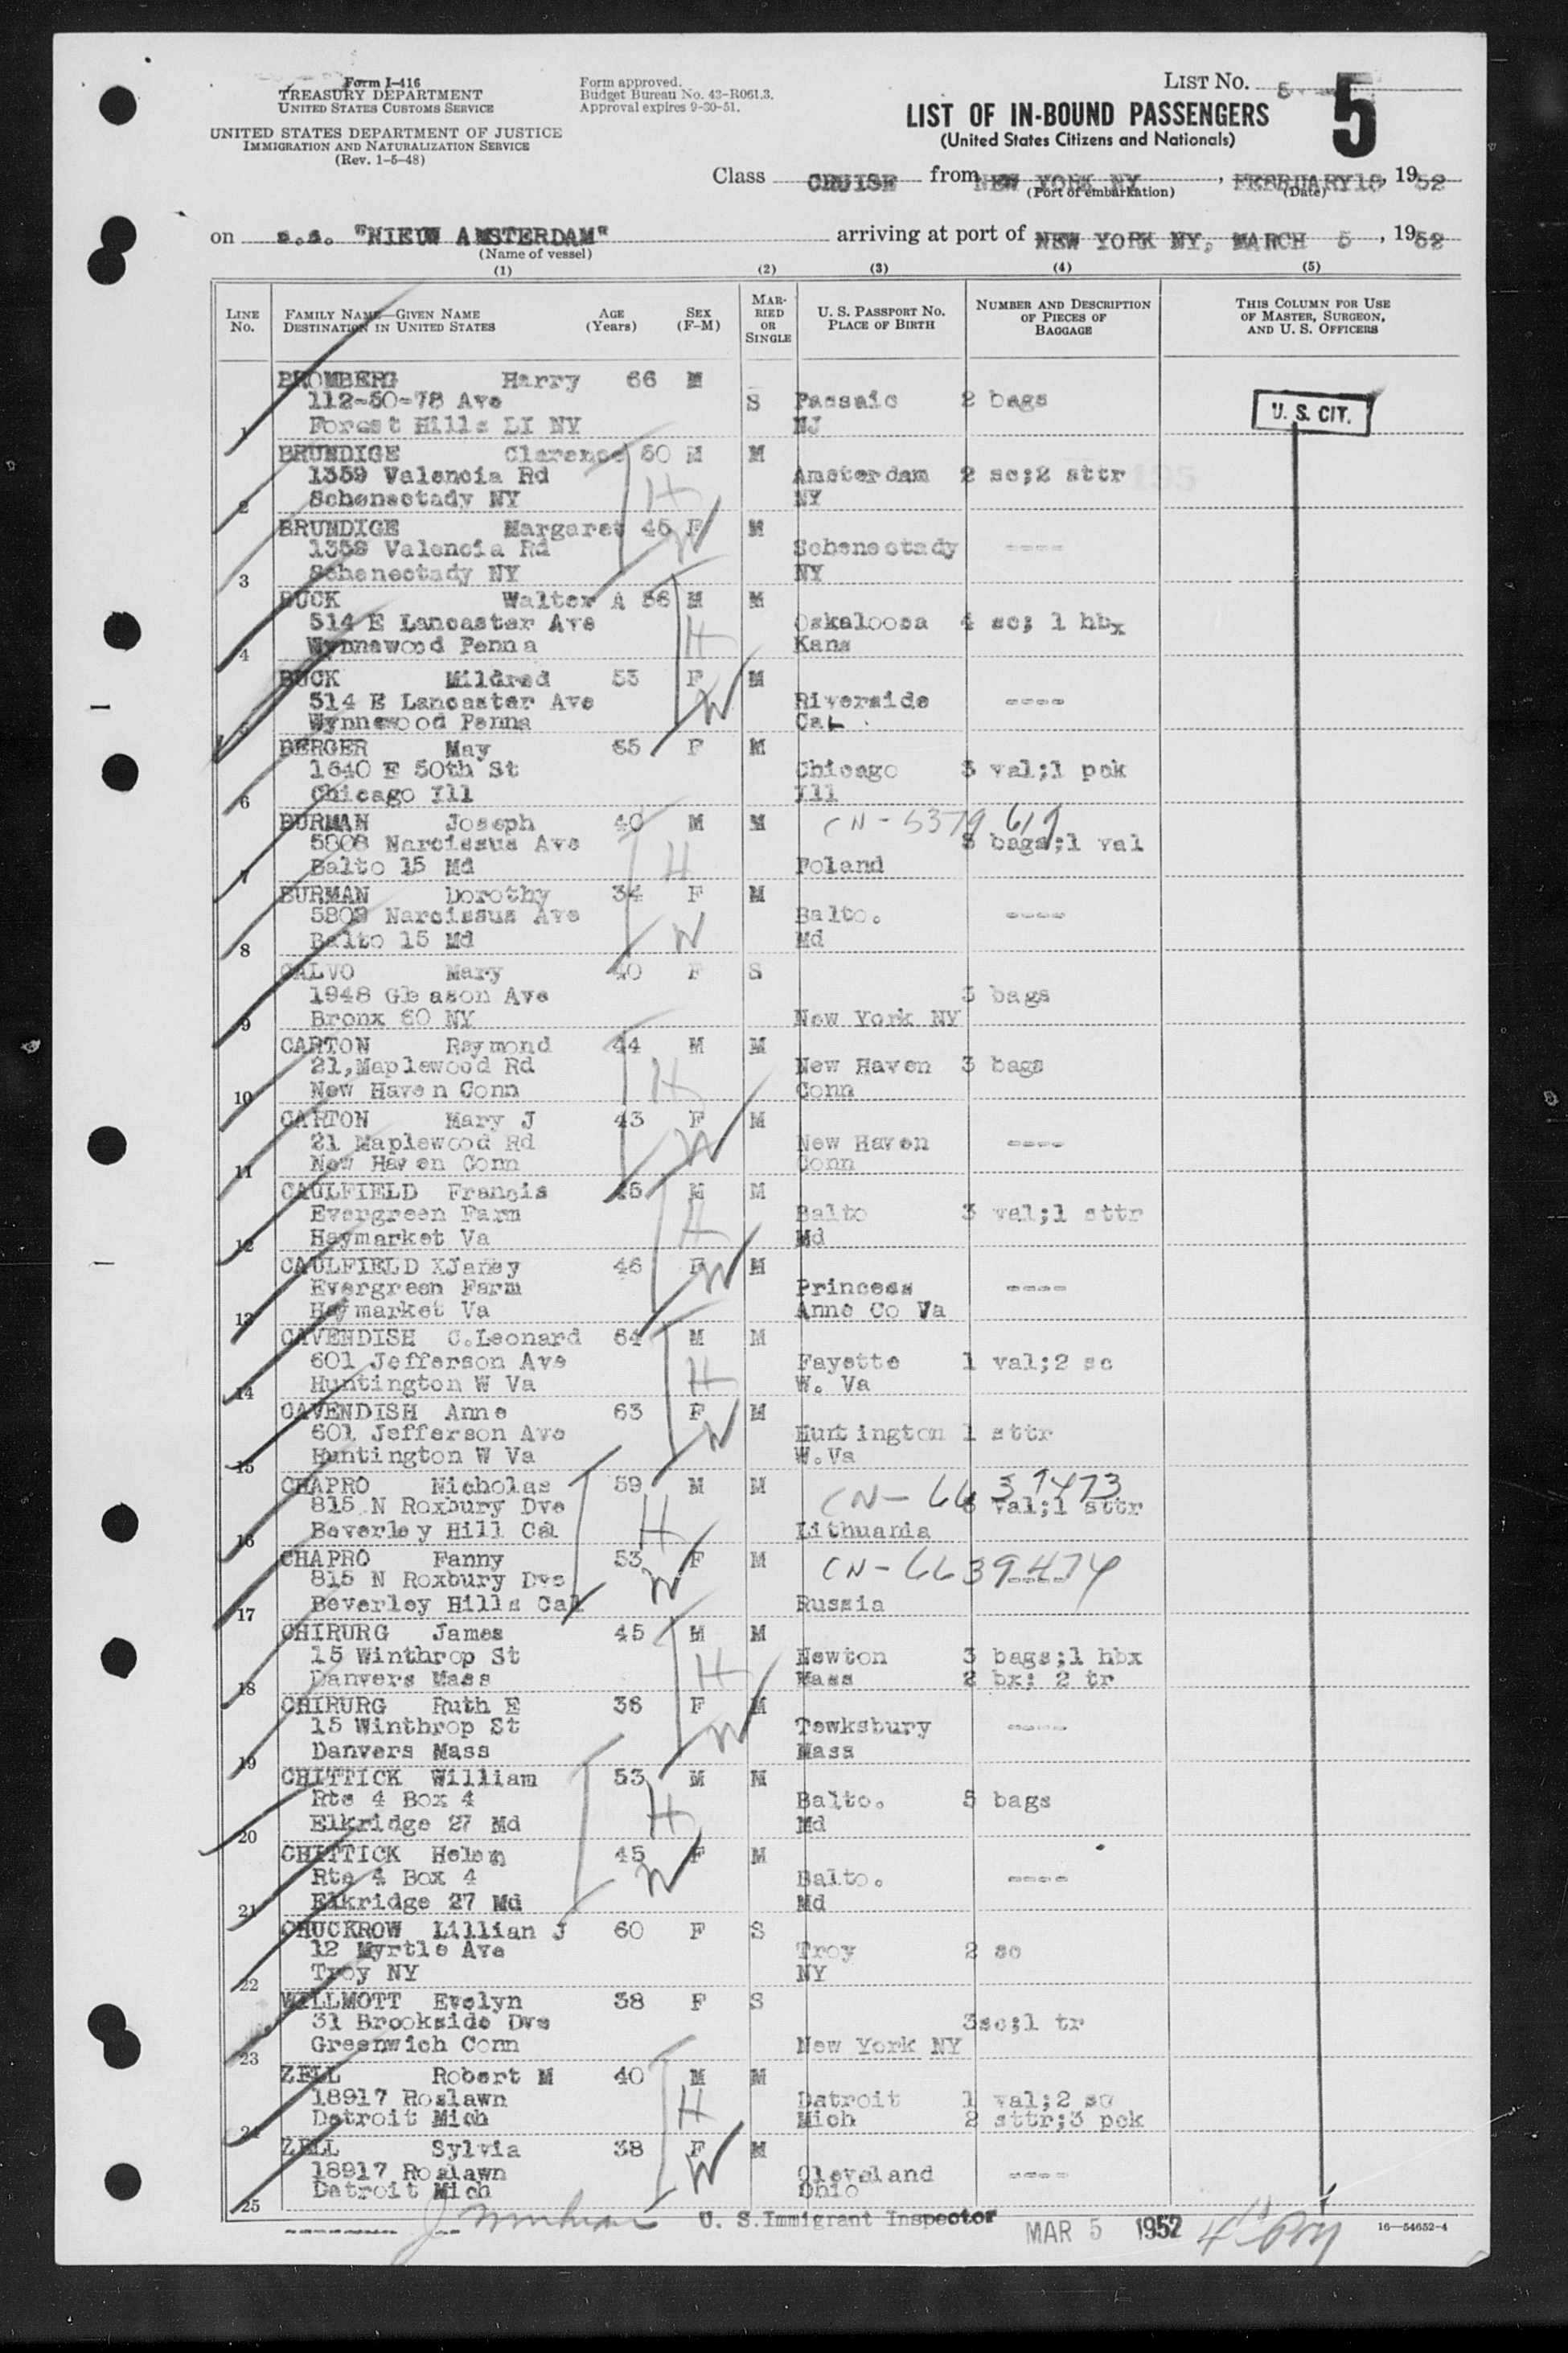 Form I-416
TREASURY DEPARTMENT
UNITED STATES CUSTOMS SERVICE
UNITED STATES DEPARTMENT OF JUSTICE
IMMIGRATION AND NATURALIZATION SERVICE
(Rev. 1-5-48)
Form approved.
Budget Bureau No. 43-R061.3.
Approval expires 9-30-51.
LIST NO. 5
5
LIST OF IN-BOUND PASSENGERS
(United States Citizens and Nationals)
Class CRUISE from NEW YORK NY, FEBRUARY 16, 1952
(Port of embarkation) (Date)
on s.s. "NIEUW AMSTERDAM" arriving at port of NEW YORK NY, MARCH 5, 1952
(Name of vessel)
(1) (2) (3) (4) (5)
LINE NO. FAMILY NAME—GIVEN NAME DESTINATION IN UNITED STATES AGE (Years) SEX (F-M) MARRIED OR SINGLE U. S. PASSPORT NO. PLACE OF BIRTH NUMBER AND DESCRIPTION OF PIECES OF BAGGAGE THIS COLUMN FOR USE OF MASTER, SURGEON, AND U. S. OFFICERS
BROMBERG Harry 66 M
112-50-78 Ave S Passaic 2 bags
U. S. CIT.
1 Forest Hills LI NY NJ
BRUNDIGE Clarence 50 M M
1359 Valencia Rd Amsterdam 2 sc;2 sttr
2 Schenectady NY NY
BRUNDIGE Margaret 45 F M
1359 Valencia Rd Schenectady ----
3 Schenectady NY NY
BUCK Walter A 56 M M
514 E Lancaster Ave Oskaloosa 4 sc; 1 hbx
4 Wynnewood Penna Kans
BUCK Mildred 53 F M
514 E Lancaster Ave Riverside ----
5 Wynnewood Penna Cal
BERGER May 65 F M
1640 E 50th St Chicago 3 val;1 pck
6 Chicago Ill Ill
BURMAN Joseph 40 M M CN-5379 619
5808 Narcissus Ave 3 bags;1 val
7 Balto 15 Md Poland
BURMAN Dorothy 34 F M
5808 Narcissus Ave Balto. ----
8 Balto 15 Md Md
CALVO Mary 40 F S
1948 Gleason Ave 3 bags
9 Bronx 60 NY New York NY
CARTON Raymond 44 M M
21,Maplewood Rd New Haven 3 bags
10 New Haven Conn Conn
CARTON Mary J 43 F M
21 Maplewood Rd New Haven ----
11 New Haven Conn Conn
CAULFIELD Francis 45 M M
Evergreen Farm Balto 3 val;1 sttr
12 Haymarket Va Md
CAULFIELD XJaney 46 F M
Evergreen Farm Princess ----
13 Haymarket Va Anne Co Va
CAVENDISH C.Leonard 64 M M
601 Jefferson Ave Fayette 1 val;2 sc
14 Huntington W Va W. Va
CAVENDISH Anne 63 F M
601 Jefferson Ave Huntington 1 sttr
15 Huntington W Va W.Va
CHAPRO Nicholas 59 M M CN-6639473
815 N Roxbury Dve val;1 sttr
16 Beverley Hill Cal Lithuania
CHAPRO Fanny 53 F M CN-6639474
815 N Roxbury Dve ----
17 Beverley Hills Cal Russia
CHIRURG James 45 M M
15 Winthrop St Newton 3 bags;1 hbx
18 Danvers Mass Mass 2 bx; 2 tr
CHIRURG Ruth E 36 F M
15 Winthrop St Tewksbury ----
19 Danvers Mass Mass
CHITTICK William 53 M M
Rte 4 Box 4 Balto. 5 bags
20 Elkridge 27 Md Md
CHITTICK Helen 45 F M
Rte 4 Box 4 Balto. ----
21 Elkridge 27 Md Md
CHUCKROW Lillian J 60 F S
12 Myrtle Ave Troy 2 sc
22 Troy NY NY
WILLMOTT Evelyn 38 F S
31 Brookside Dve 3sc;1 tr
23 Greenwich Conn New York NY
ZELL Robert M 40 M M
18917 Roslawn Detroit 1 val;2 sc
24 Detroit Mich Mich 2 sttr;3 pck
ZELL Sylvia 38 F M
18917 Roslawn Cleveland ----
25 Detroit Mich Ohio
U. S. Immigrant Inspector
MAR 5 1952
16—54652-4